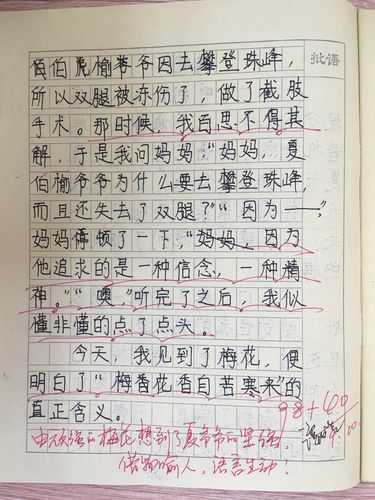 批语
伯虎榆爷爷因去攀登珠峰，
所以双腿被冻伤了，做了截肢
手术。那时候，我百思不得其
解，于是我问妈妈：“妈妈，夏
伯榆爷爷为什么要去攀登珠峰，
而且还失去了双腿？”“因为——，”
妈妈停顿了一下，“妈妈，因为
他追求的是一种信念，一种精
神。”“噢，”听完了之后，我似
懂非懂的点了点头。
今天，我见到了梅花，便
明白了“梅香花香自苦寒来”的
真正含义。
98+40
由顽强的梅花想到了夏爷爷的坚强，
借物喻人，语言生动！